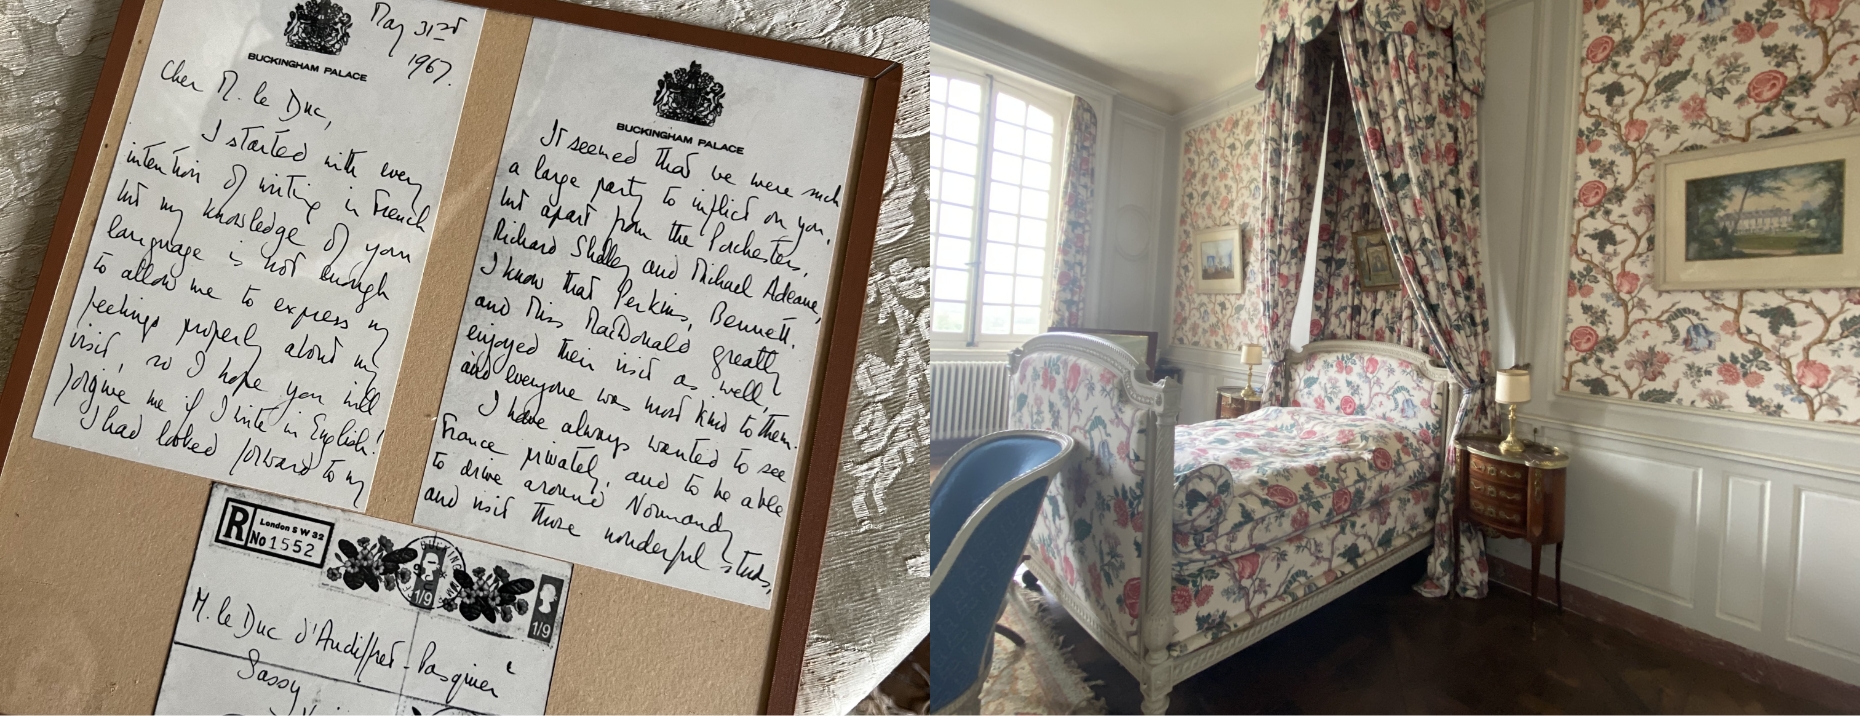 BUCKINGHAM PALACE
May 31st
1967.
Cher M. le Duc,
I started with every
intention of writing in French
but my knowledge of your
language is not enough
to allow me to express my
feelings properly about my
visit, so I hope you will
forgive me if I write in English!
I had looked forward to my
BUCKINGHAM PALACE
It seemed that we were such
a large party to inflict on you,
but apart from the Porchesters,
Richard Shelley and Michael Adeane,
I know that Perkins, Bennett,
and Miss MacDonald greatly
enjoyed their visit as well,
and everyone was most kind to them.
I have always wanted to see
France privately, and to be able
to drive around Normandy
and visit those wonderful studs,
R
London S W 32
No 1552
1/9
1/9
M. le Duc d'Audiffret-Pasquier
Sassy